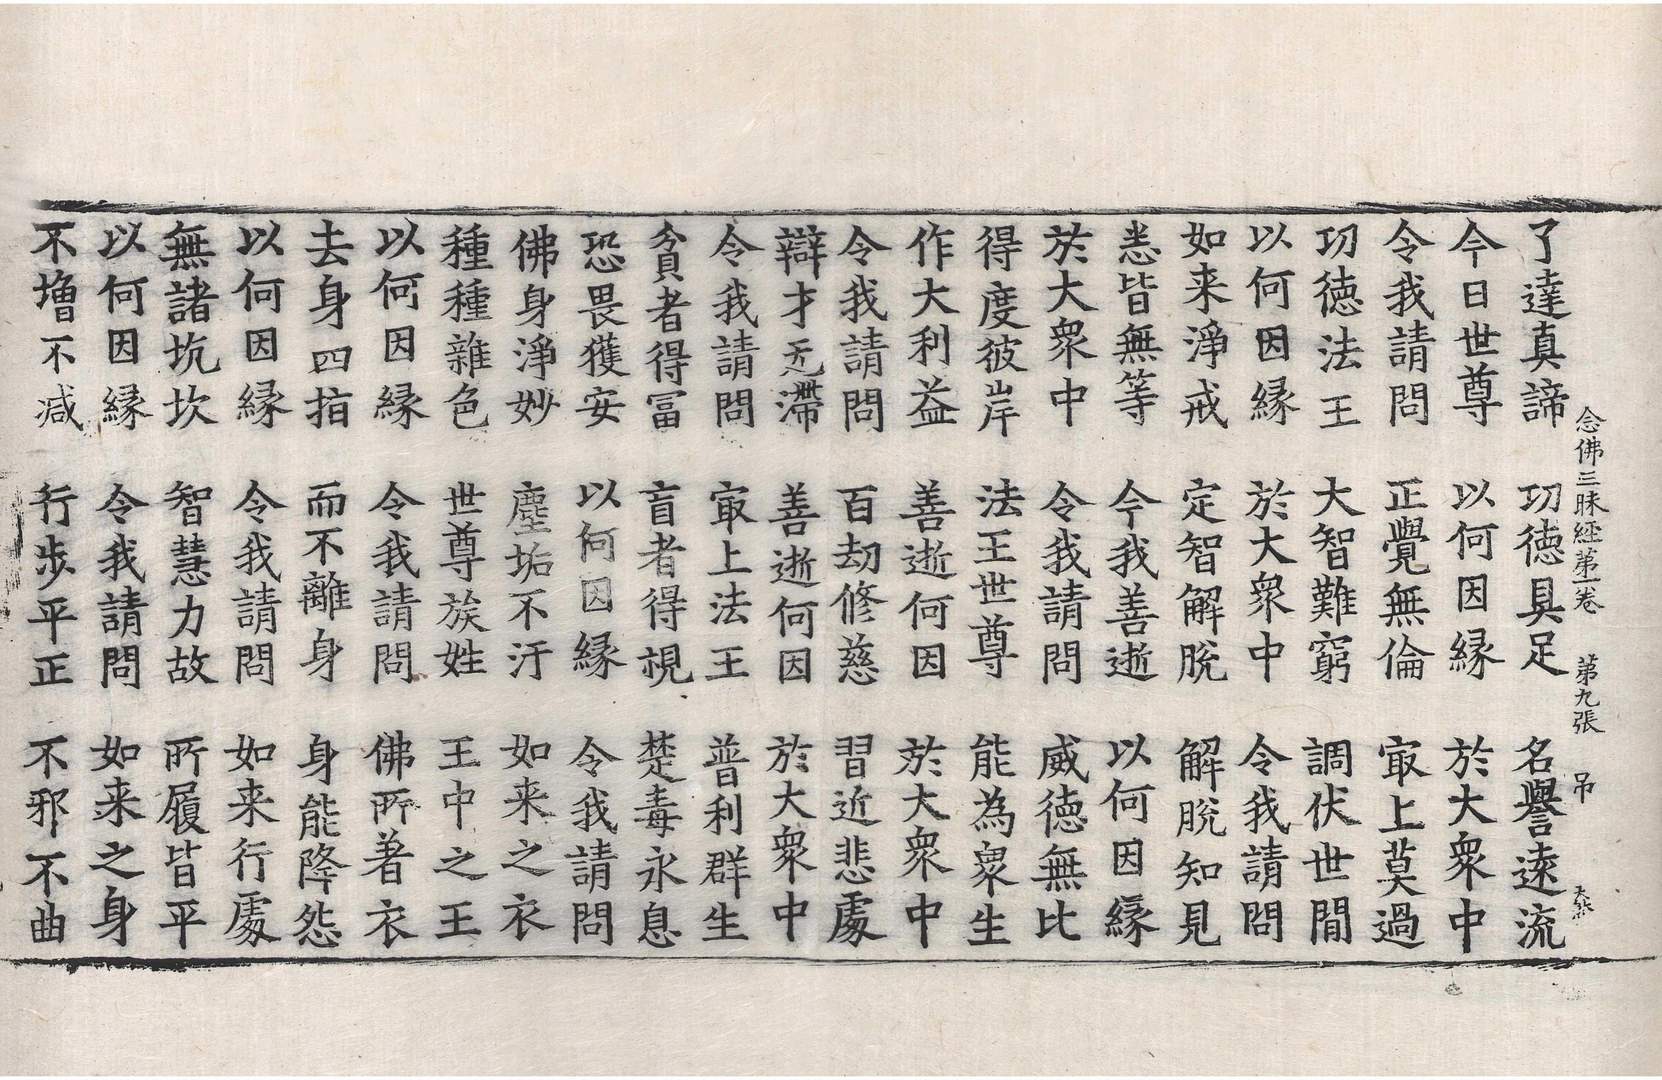 念佛三昧經第一卷 第九張 吊
了達真諦 功徳具足 名譽遠流
今日世尊 以何因縁 於大衆中
令我請問 正覺無倫 㝡上莫過
功徳法王 大智難窮 調伏世間
以何因縁 於大衆中 令我請問
如来淨戒 定智解脫 解脫知見
悉皆無等 今我善逝 以何因縁
於大衆中 令我請問 威徳無比
得度彼岸 法王世尊 能為衆生
作大利益 善逝何因 於大衆中
令我請問 百劫修慈 習近悲處
辯才无滯 善逝何因 於大衆中
令我請問 㝡上法王 普利群生
貧者得冨 盲者得視 楚毒永息
恐畏獲安 以何因縁 令我請問
佛身淨妙 塵垢不汙 如来之衣
種種雜色 世尊族姓 王中之王
以何因縁 令我請問 佛所著衣
去身四指 而不離身 身能降怨
以何因縁 令我請問 如来行處
無諸坑坎 智慧力故 所履皆平
以何因縁 令我請問 如来之身
不增不减 行步平正 不邪不曲